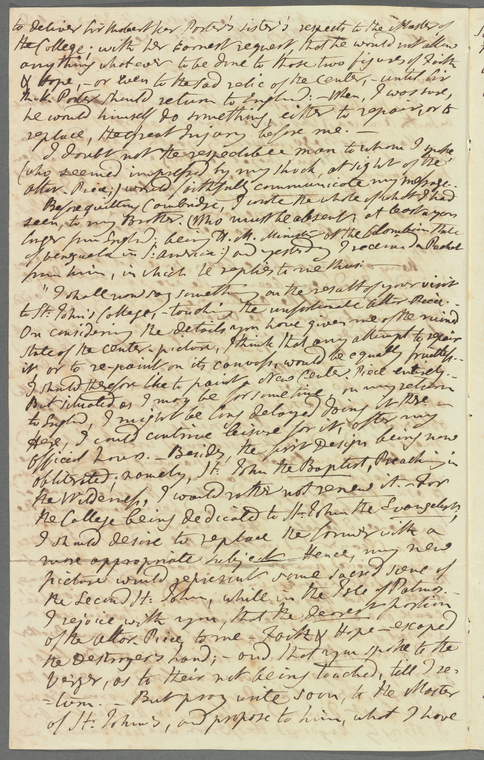 to deliver Sir Robert Ker Porter's sister's respects to the Master of
the College; with her earnest request, that he would not allow
anything whatever to be done to those two figures of Faith
& Hope, – or even to the sad relic of the Center, – until Sir
R. K. Porter should return to England. – When, I was sure,
he would himself do something, either to repair, or to
replace, the great Injury before me. –
I doubt not the respectable man to whom I spoke
(who seemed impressed by my shock, at sight of the
altar-Piece;) would faithfully communicate my message. –
Before quitting Cambridge, I wrote the whole of what I had
seen, to my Brother. (Who must be absent, at least a year
longer from England; being H. M. Minister at the Colombian State
of Venezuela in S: America:) and yesterday I received a Packet
from him, in which he replies to me thus. –
"I shall now say something on the result of your visit
to St. John's College, – touching the unfortunate Altar-Piece. –
On considering the details you have given me of the ruined
State of the center-picture, I think that any attempt to repair
it, or to re-paint on its canvass, would be equally fruitless. –
I should therefore like to paint a New Center Piece entirely. –
But situated as I may be for some time, on my return
to England, I might be long delayed doing it there –
Here, I could continue leisure for it, after my
Official hours. – Besides, the first Design being now
obliterated; namely, St. John the Baptist, Preaching in
the Wilderness, I would rather not renew it – For
the College being dedicated to St. John the Evangelist,
I should desire to replace the former with a
more appropriate subject. Hence, my new
picture would represent some sacred scene of
the Second St: John, while in the Isle of Patmos. –
I rejoice with you, that the dearest portion
of the Altar Piece to me – Faith & Hope – escaped
the destroyer's hand; and that you spoke to the
Verger, as to their not being touched, till I re-
=turn. – But pray write soon, to the Master
of St. John's, and propose to him, what I have